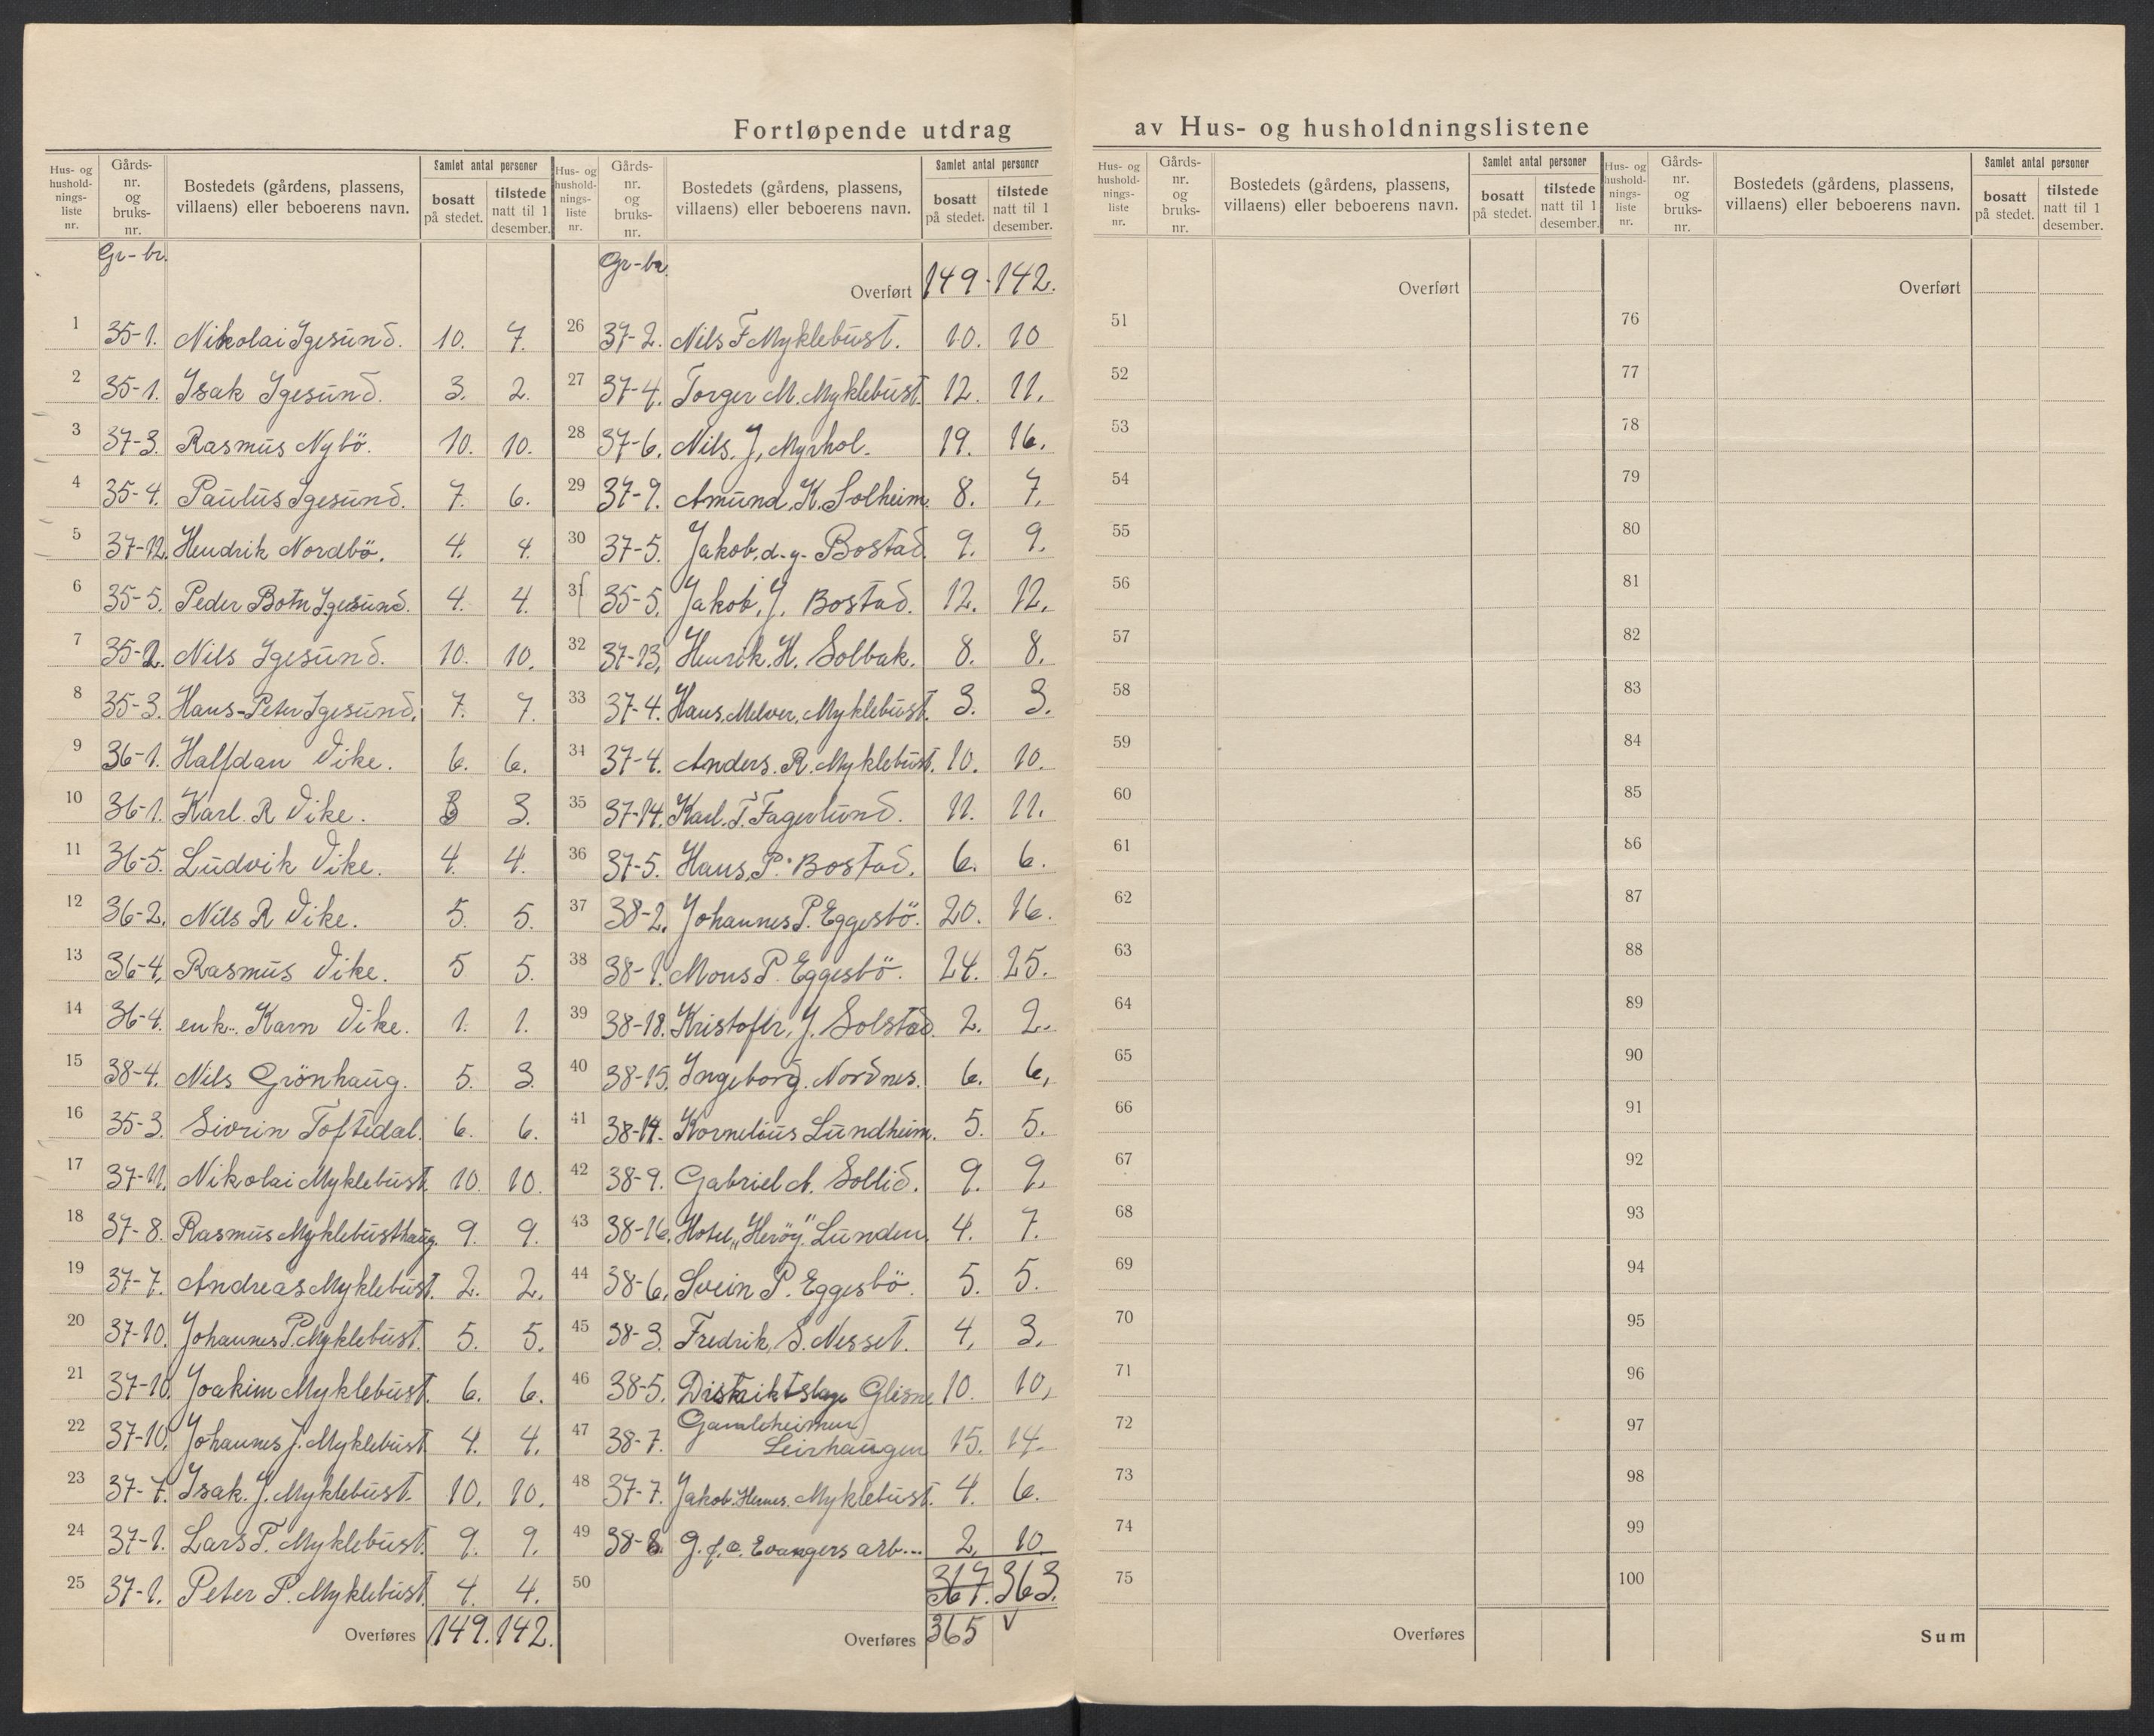 Fortløpende utdrag av Hus- og husholdningslistene
Hus- og hushold-nings-liste nr. | Gårds-nr. og bruks-nr. | Bostedets (gårdens, plassens, villaens) eller beboerens navn. | Samlet antal personer | bosatt på stedet. | tilstede natt til 1 desember.
Gr-br.
1 35-1. Nikolai Igesund. 10. 7.
2 35-1. Isak Igesund. 3. 2.
3 37-3. Rasmus Nybö. 10. 10.
4 35-4. Paulus Igesund. 7. 6.
5 37-12. Hendrik Nordbö. 4. 4.
6 35-5. Peder Botn Igesund. 4. 4.
7 35-2. Nils Igesund. 10. 10.
8 35-3. Hans-Peter Igesund. 7. 7.
9 36-1. Halfdan Vike. 6. 6.
10 36-1. Karl. R Vike. 3 3.
11 36-5. Ludvik Vike. 4. 4.
12 36-2. Nils R Vike. 5. 5.
13 36-4. Rasmus Vike. 5 5.
14 36-4. enk. Karn Vike. 1. 1.
15 38-4. Nils Grönhaug. 5. 3.
16 35-3. Sivrin Toftedal. 6. 6.
17 37-11. Nikolai Myklebust. 10. 10.
18 37-8. Rasmus Myklebusthaug. 9. 9.
19 37-7. Andreas Myklebust. 2. 2.
20 37-10. Johannes P. Myklebust. 5. 5.
21 37-10. Joakim Myklebust. 6. 6.
22 37-10. Johannes J. Myklebust 4. 4.
23 37-7. Isak. J. Myklebust. 10. 10.
24 37-1. Lars P. Myklebust. 9. 9.
25 37-1. Peter P. Myklebust. 4. 4.
Overføres 149. 142.
Hus- og hushold-nings-liste nr. | Gårds-nr. og bruks-nr. | Bostedets (gårdens, plassens, villaens) eller beboerens navn. | Samlet antal personer | bosatt på stedet. | tilstede natt til 1 desember.
Gr-br
Overført 149. 142.
26 37-2. Nils F Myklebust. 10. 10
27 37-4. Torger M. Myklebust. 12. 11.
28 37-6. Nils. J. Myrhol. 19. 16.
29 37-9. Amund. K. Solheim. 8. 7.
30 37-5. Jakob. d.y. Bostad. 9. 9.
31 35-5. Jakob. J. Bostad. 12. 12.
32 37-13. Henrik. H. Solbak. 8. 8.
33 37-4. Hans. Melver. Myklebust. 3. 3.
34 37-4. Anders. R. Myklebust. 10. 10.
35 37-14. Karl. T. Fagerlund. 11. 11.
36 37-5. Hans. P. Bostad. 6. 6.
37 38-2. Johannes P. Eggesbö. 20. 16.
38 38-1. Mons P. Eggesbö. 24. 25.
39 38-18. Kristofer, J. Solstad. 2. 2.
40 38-15. Ingeborg. Nordnes. 6. 6,
41 38-14. Kornelius Lundheim. 5. 5.
42 38-9. Gabriel A. Sollid. 9. 9.
43 38-16. Hotel „Heröy" Lunden. 4. 7.
44 38-6. Svein P. Eggesbö. 5. 5.
45 38-3. Fredrik, S. Nesset. 4, 3,
46 38-5. Distriktslege Glisne 10. 10,
47 38-7. Gamleheimen
Leirhaugen 15. 14.
48 37-7. Jakob. Hennes. Myklebust. 4. 6.
49 38-8. G. f. a. Evangers arb... 2, 10
50 367. 363.
Overføres 365 v
Hus- og hushold-nings-liste nr. | Gårds-nr. og bruks-nr. | Bostedets (gårdens, plassens, villaens) eller beboerens navn. | Samlet antal personer | bosatt på stedet. | tilstede natt til 1 desember.
Overført
51
52
53
54
55
56
57
58
59
60
61
62
63
64
65
66
67
68
69
70
71
72
73
74
75
Overføres
Hus- og hushold-nings-liste nr. | Gårds-nr. og bruks-nr. | Bostedets (gårdens, plassens, villaens) eller beboerens navn. | Samlet antal personer | bosatt på stedet. | tilstede natt til 1 desember.
Overført
76
77
78
79
80
81
82
83
84
85
86
87
88
89
90
91
92
93
94
95
96
97
98
99
100
Sum